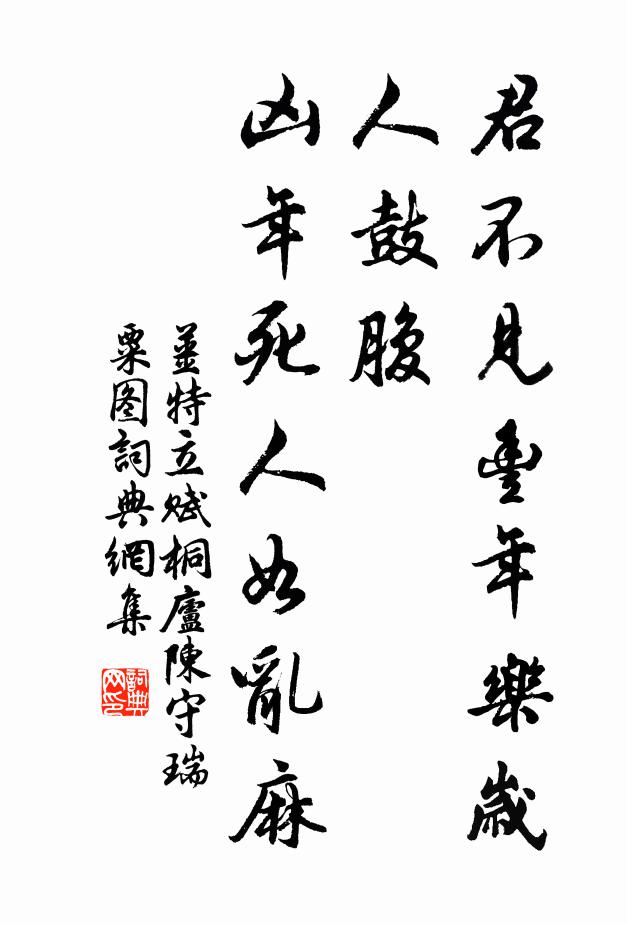 君不見豐年樂歲
人鼓腹
凶年死人如亂麻
姜特立賦桐廬陳守瑞
粟图詞典網集
詞典
网印